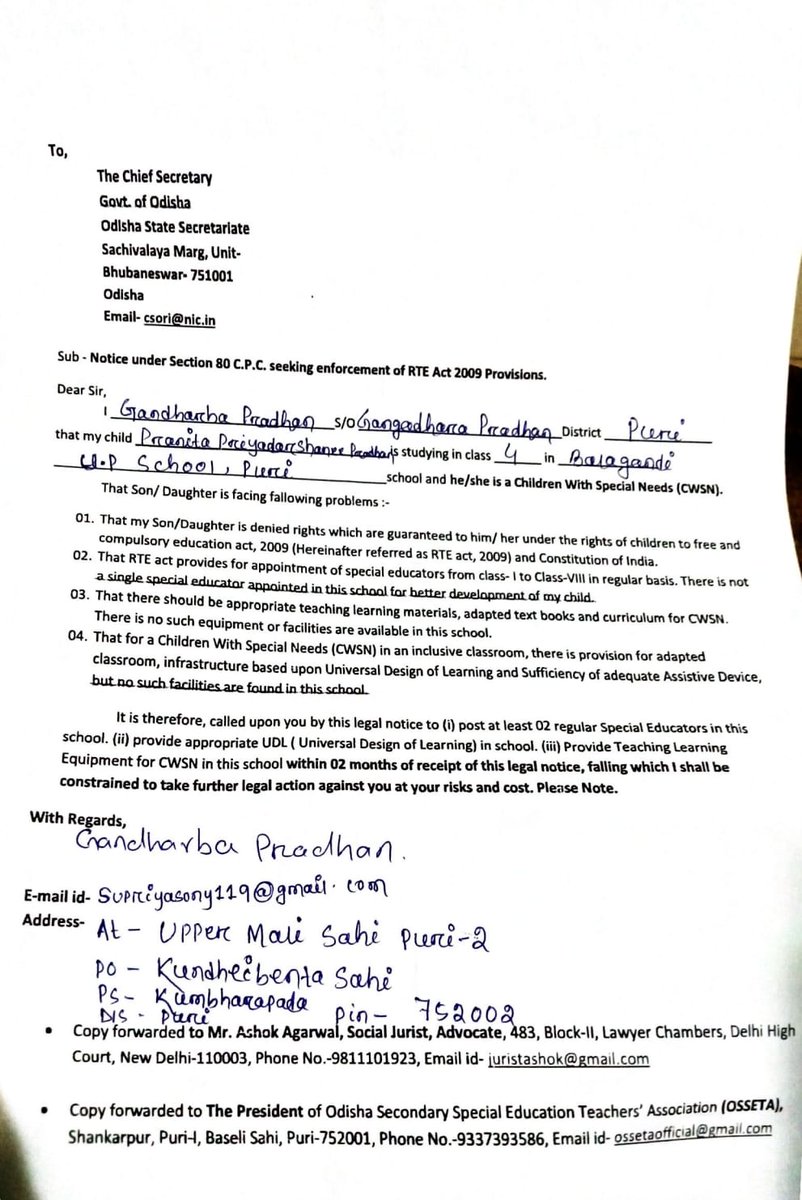 To,
The Chief Secretary
Govt. of Odisha
Odisha State Secretariate
Sachivalaya Marg, Unit-
Bhubaneswar- 751001
Odisha
Email- csori@nic.in
Sub - Notice under Section 80 C.P.C. seeking enforcement of RTE Act 2009 Provisions.
Dear Sir,
I Gandharba Pradhan S/O Gangadhara Pradhan District Puri
that my child Pranita Priyadarshanee Pradhan is studying in class 4 in Balagandi
U.P School, Puri school and he/she is a Children With Special Needs (CWSN).
That Son/ Daughter is facing fallowing problems :-
01. That my Son/Daughter is denied rights which are guaranteed to him/ her under the rights of children to free and
compulsory education act, 2009 (Hereinafter referred as RTE act, 2009) and Constitution of India.
02. That RTE act provides for appointment of special educators from class- I to Class-VIII in regular basis. There is not
a single special educator appointed in this school for better development of my child.
03. That there should be appropriate teaching learning materials, adapted text books and curriculum for CWSN.
There is no such equipment or facilities are available in this school.
04. That for a Children With Special Needs (CWSN) in an inclusive classroom, there is provision for adapted
classroom, infrastructure based upon Universal Design of Learning and Sufficiency of adequate Assistive Device,
but no such facilities are found in this school.
It is therefore, called upon you by this legal notice to (i) post at least 02 regular Special Educators in this
school. (ii) provide appropriate UDL ( Universal Design of Learning) in school. (iii) Provide Teaching Learning
Equipment for CWSN in this school within 02 months of receipt of this legal notice, falling which I shall be
constrained to take further legal action against you at your risks and cost. Please Note.
With Regards,
Gandharba Pradhan.
E-mail id- Supriyasony119@gmail.com
Address- At - Upper Mali Sahi Puri-2
PO - Kundheibenta Sahi
PS - Kumbharapada
Dis - Puri Pin - 752002
• Copy forwarded to Mr. Ashok Agarwal, Social Jurist, Advocate, 483, Block-II, Lawyer Chambers, Delhi High
Court, New Delhi-110003, Phone No.-9811101923, Email id- juristashok@gmail.com
• Copy forwarded to The President of Odisha Secondary Special Education Teachers' Association (OSSETA),
Shankarpur, Puri-I, Baseli Sahi, Puri-752001, Phone No.-9337393586, Email id- ossetaofficial@gmail.com